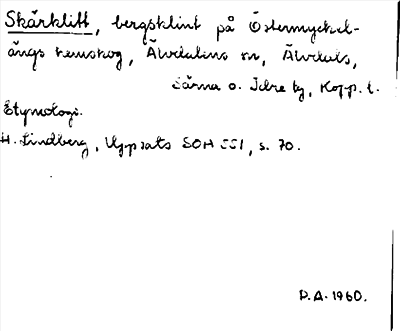 Skärklitt, bergsklint på Östermyckel-
ängs hemskog, Älvdalens sn, Älvdals,
Särna o. Idre tg, Kopp. l.
Etymologi.
H. Lindberg, Uppsats SOH 551, s. 70.
P.A. 1960.